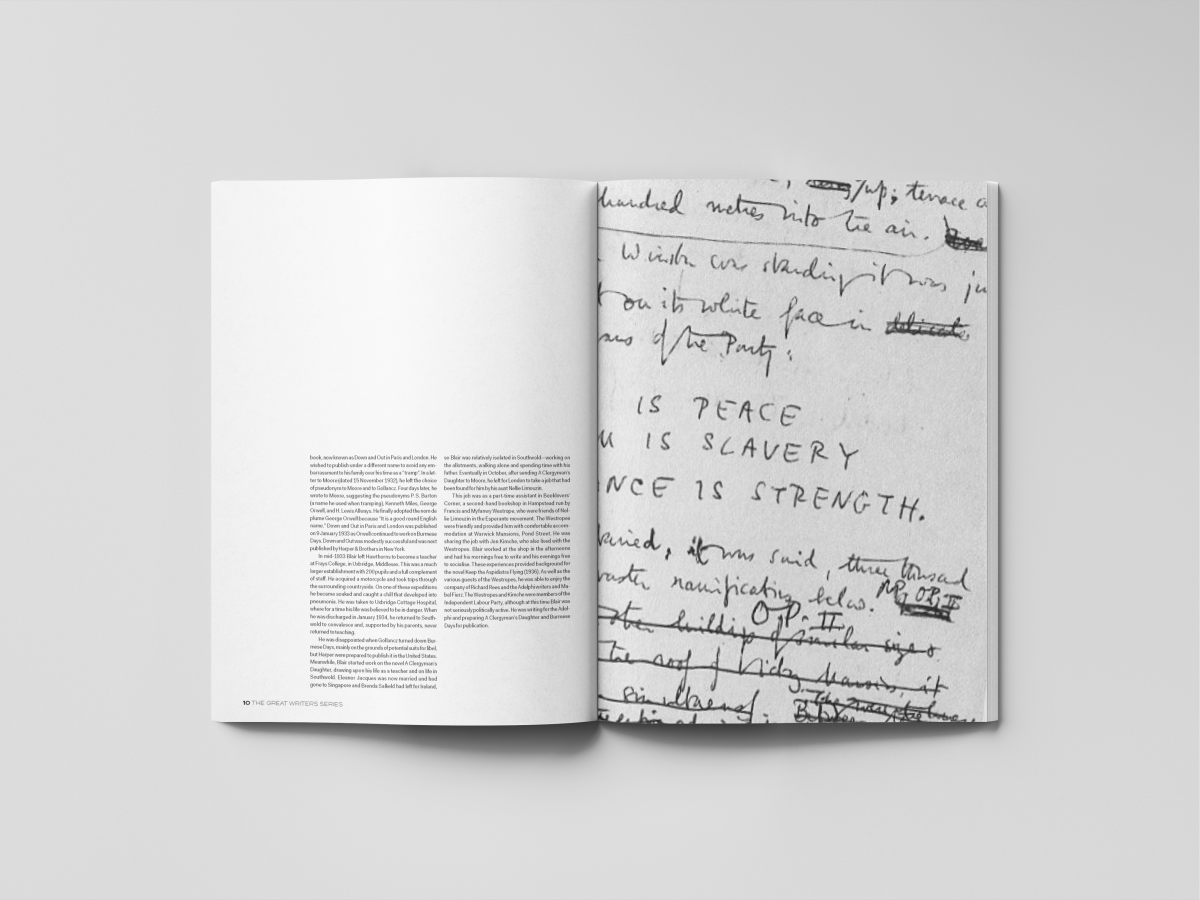 book, now known as Down and Out in Paris and London. He
wished to publish under a different name to avoid any em-
barrassment to his family over his time as a "tramp". In a let-
ter to Moore (dated 15 November 1932), he left the choice
of pseudonym to Moore and to Gollancz. Four days later, he
wrote to Moore, suggesting the pseudonyms P. S. Burton
(a name he used when tramping), Kenneth Miles, George
Orwell, and H. Lewis Allways. He finally adopted the nom de
plume George Orwell because "It is a good round English
name." Down and Out in Paris and London was published
on 9 January 1933 as Orwell continued to work on Burmese
Days. Down and Out was modestly successful and was next
published by Harper & Brothers in New York.
In mid-1933 Blair left Hawthorns to become a teacher
at Frays College, in Uxbridge, Middlesex. This was a much
larger establishment with 200 pupils and a full complement
of staff. He acquired a motorcycle and took trips through
the surrounding countryside. On one of these expeditions
he became soaked and caught a chill that developed into
pneumonia. He was taken to Uxbridge Cottage Hospital,
where for a time his life was believed to be in danger. When
he was discharged in January 1934, he returned to South-
wold to convalesce and, supported by his parents, never
returned to teaching.
He was disappointed when Gollancz turned down Bur-
mese Days, mainly on the grounds of potential suits for libel,
but Harper were prepared to publish it in the United States.
Meanwhile, Blair started work on the novel A Clergyman's
Daughter, drawing upon his life as a teacher and on life in
Southwold. Eleanor Jacques was now married and had
gone to Singapore and Brenda Salkeld had left for Ireland,
so Blair was relatively isolated in Southwold—working on
the allotments, walking alone and spending time with his
father. Eventually in October, after sending A Clergyman's
Daughter to Moore, he left for London to take a job that had
been found for him by his aunt Nellie Limouzin.
This job was as a part-time assistant in Booklovers'
Corner, a second-hand bookshop in Hampstead run by
Francis and Myfanwy Westrope, who were friends of Nel-
lie Limouzin in the Esperanto movement. The Westropes
were friendly and provided him with comfortable accom-
modation at Warwick Mansions, Pond Street. He was
sharing the job with Jon Kimche, who also lived with the
Westropes. Blair worked at the shop in the afternoons
and had his mornings free to write and his evenings free
to socialise. These experiences provided background for
the novel Keep the Aspidistra Flying (1936). As well as the
various guests of the Westropes, he was able to enjoy the
company of Richard Rees and the Adelphi writers and Ma-
bel Fierz. The Westropes and Kimche were members of the
Independent Labour Party, although at this time Blair was
not seriously politically active. He was writing for the Adel-
phi and preparing A Clergyman's Daughter and Burmese
Days for publication.
10 THE GREAT WRITERS SERIES
up; terrace
hundred metres into the air.
Winston was standing it was ju
on its white face in delicate
of the Party:
IS PEACE
IS SLAVERY
NCE IS STRENGTH.
ained, it was said, three thousand
ramifications below.
OP. II
other buildings of similar size
the roof of Victory Mansions, it